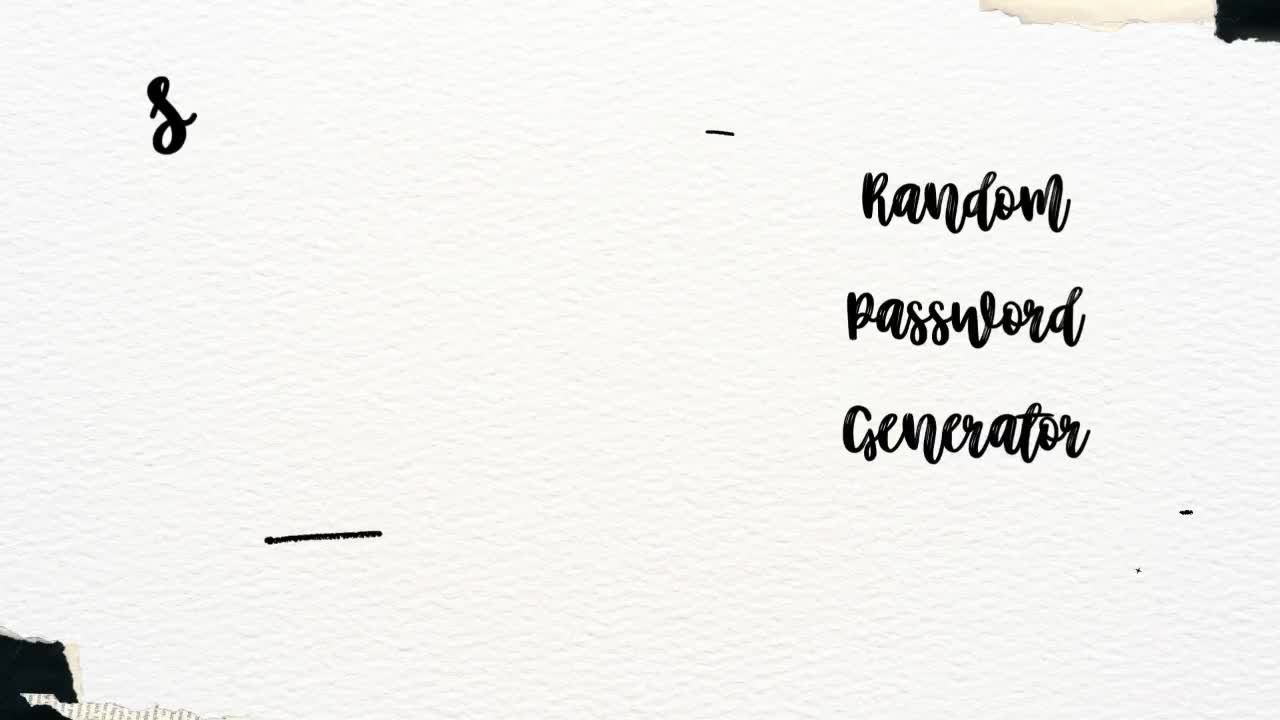 S
Random
Password
Generator